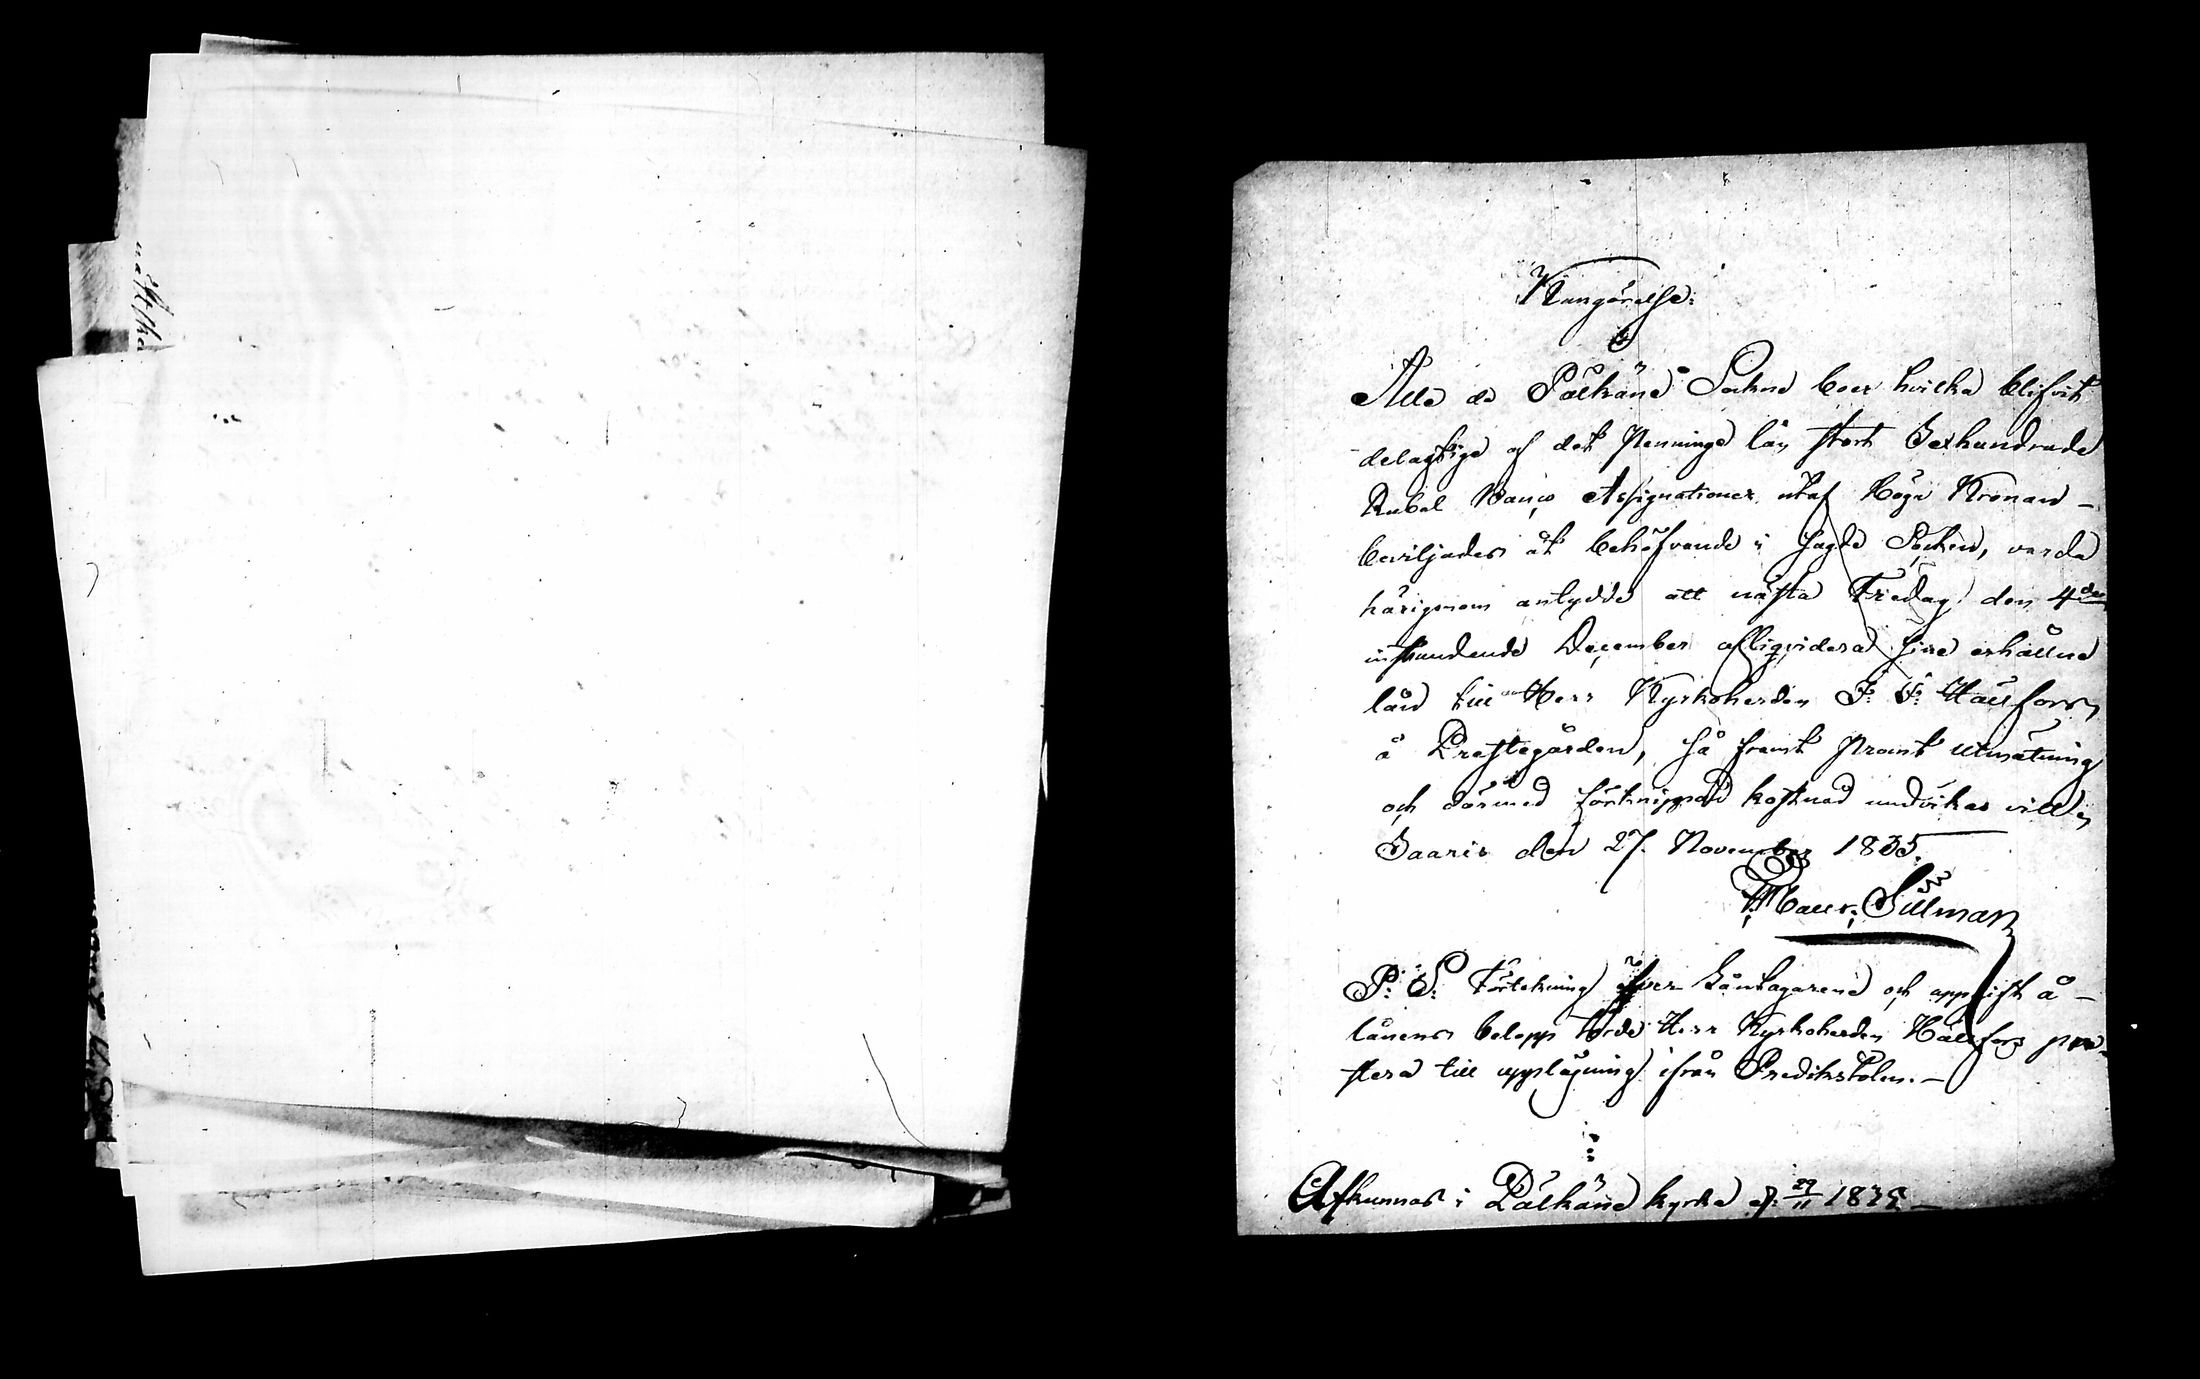 Kungörelse:
Alla de Pälkäne Sockne boer hvilka blifvit
delagtige af det Penninge lån stort Sexhundrade
Rubel Banco Assignationer utaf Höga Kronan –
beviljades åt behöfvande i sagde Socken, varda
härigenom antydde att nästa Fredag den 4de
instundande December afliqvidera sine erhållne
lån till Herr Kyrkoherden F: F: Hällfors,
å Prestegården, så framt Promt utmätning
och därmed förknippad kostnad undvikas vill,
Saaris den 27. November 1835.
Maur: Silman
P: S: Förtekning öfver Låntagarene och uppgift å –
lånens belopp torde Herr Kyrkoherden Hällfors pre-
stera till uppläsning ifrån Predikstolen. –
Afkunnas i Pälkäne kyrka d: 29/11 1835 –